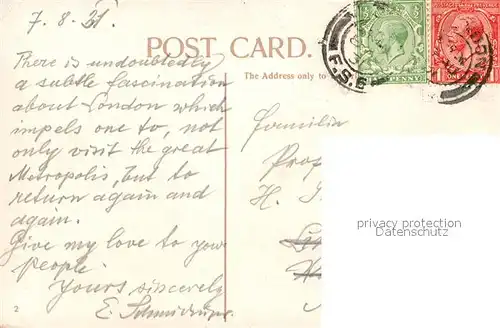 7.8.21.
There is undoubtedly
a subtle fascination
about London which
impels one to, not
only visit the great
Metropolis, but to
return again and
again.
Give my love to your
people.
Yours sincerely
E.
2
POST CARD.
The Address only to
F.S.6
PENNY
POSTAGE
ONE
Familie
Prof
H.
privacy protection
Datenschutz